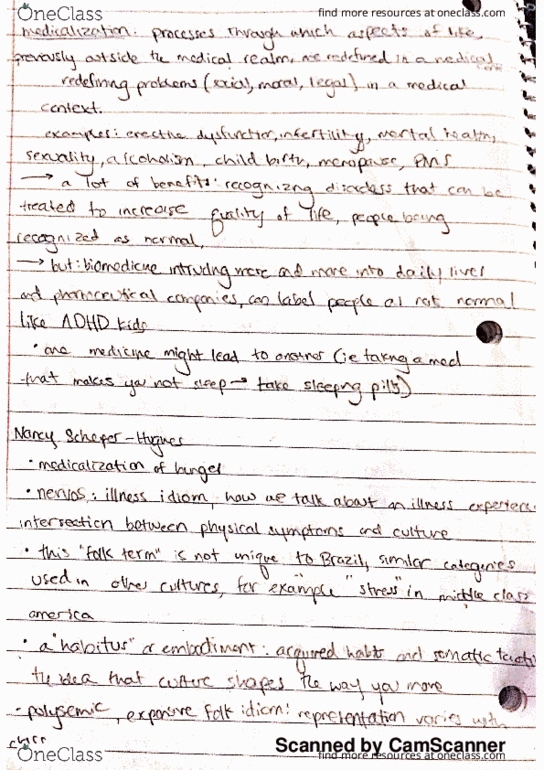 OneClass
find more resources at oneclass.com
medicalization: processes through which aspects of life,
previously outside the medical realm, are redefined in a medical
redefining problems (social, moral, legal) in a medical
context.
examples: erectile dysfunction, infertility, mental health,
sexuality, alcoholism, child birth, menopause, PMS
→ a lot of benefits: recognizing diseases that can be
treated to increase quality of life, people being
recognized as normal,
→ but: biomedicine intruding more and more into daily lives
and pharmaceutical companies, can label people as not normal
like ADHD kids
• one medicine might lead to another (ie taking a med
that makes you not sleep → take sleeping pills)
Nancy Scheper-Hughes
• medicalization of hunger
• nervos: illness idiom, how we talk about an illness experience
intersection between physical symptoms and culture
• this "folk term" is not unique to Brazil, similar categories
used in other cultures, for example "stress" in middle class
america
• a "habitus" or embodiment: acquired habits and somatic
the idea that culture shapes the way you move
• polysemic, expansive folk idiom: representation varies with
class
Scanned by CamScanner
OneClass
find more resources at oneclass.com